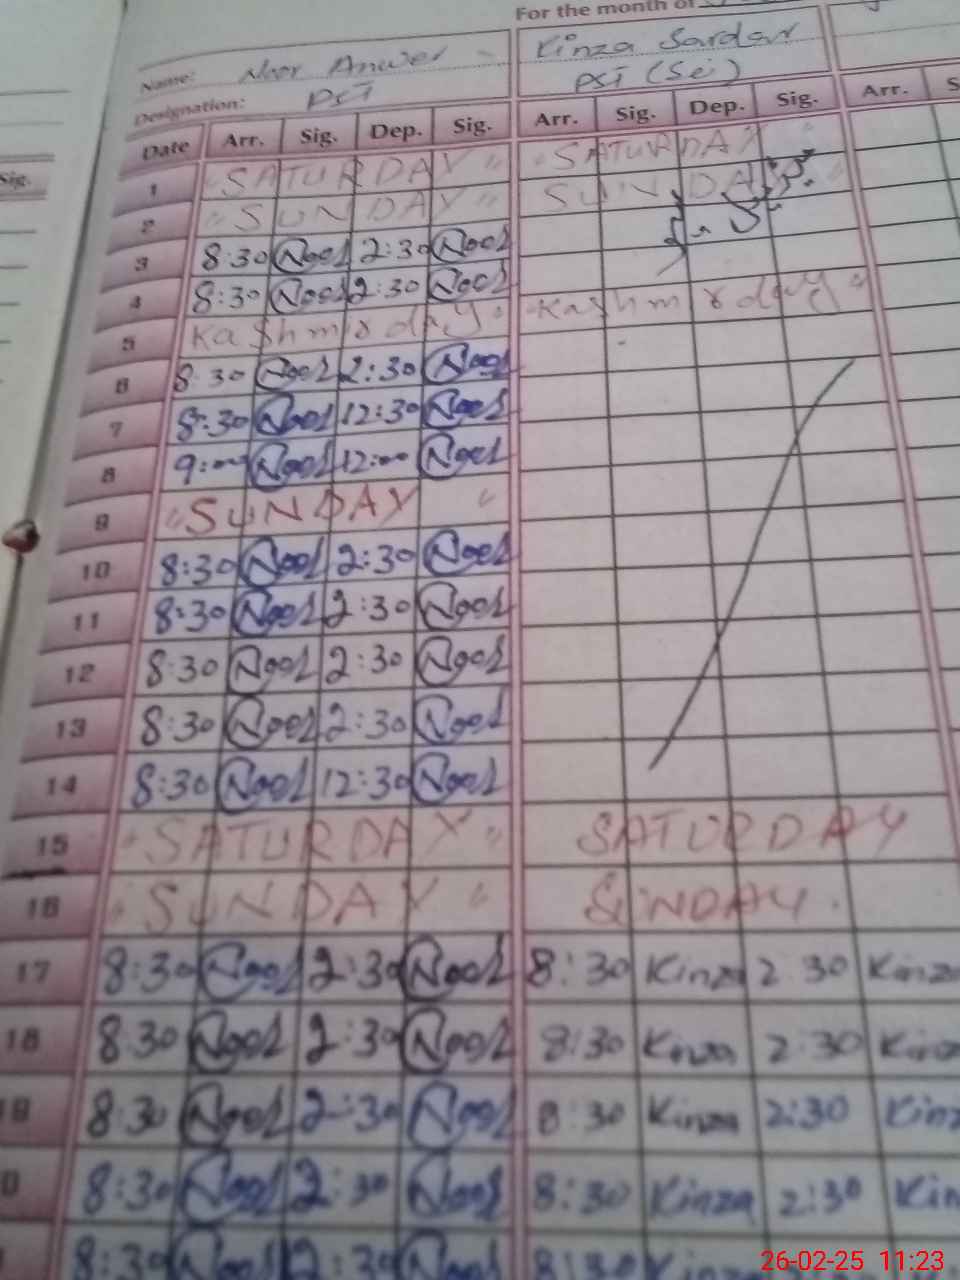 For the month of
Name: Noor Anwer Kinza Sardar
Designation: PST PST (Sci)
Date Arr. Sig. Dep. Sig. Arr. Sig. Dep. Sig. Arr. S
Sig.
1 "SATURDAY" "SATURDAY"
2 "SUNDAY" SUNDAY"
3 8:30 Noor 2:30 Noor
4 8:30 Noor 2:30 Noor
5 Kashmir day" Kashmir day"
6 8:30 Noor 2:30 Noor
7 8:30 Noor 12:30 Noor
8 9:00 Noor 12:00 Noor
9 "SUNDAY "
10 8:30 Noor 2:30 Noor
11 8:30 Noor 2:30 Noor
12 8:30 Noor 2:30 Noor
13 8:30 Noor 2:30 Noor
14 8:30 Noor 12:30 Noor
15 "SATURDAY" SATURDAY
16 "SUNDAY" SUNDAY.
17 8:30 Noor 2:30 Noor 8:30 Kinza 2:30 Kinza
18 8:30 Noor 2:30 Noor 8:30 Kinza 2:30 Kinza
19 8:30 Noor 2:30 Noor 8:30 Kinza 2:30 Kinz
0 8:30 Noor 2:30 Noor 8:30 Kinza 2:30 Kin
8:30 Noor 2:30 Noor 8:30 Kinza
26-02-25 11:23